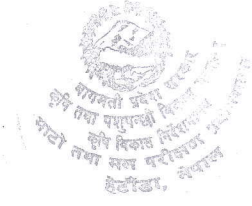 बागमती प्रदेश सरकार
कृषि तथा पशुपन्छी विकास
कृषि विकास निर्देशनालय
माटो तथा मल परीक्षण
हेटौंडा, नेपाल